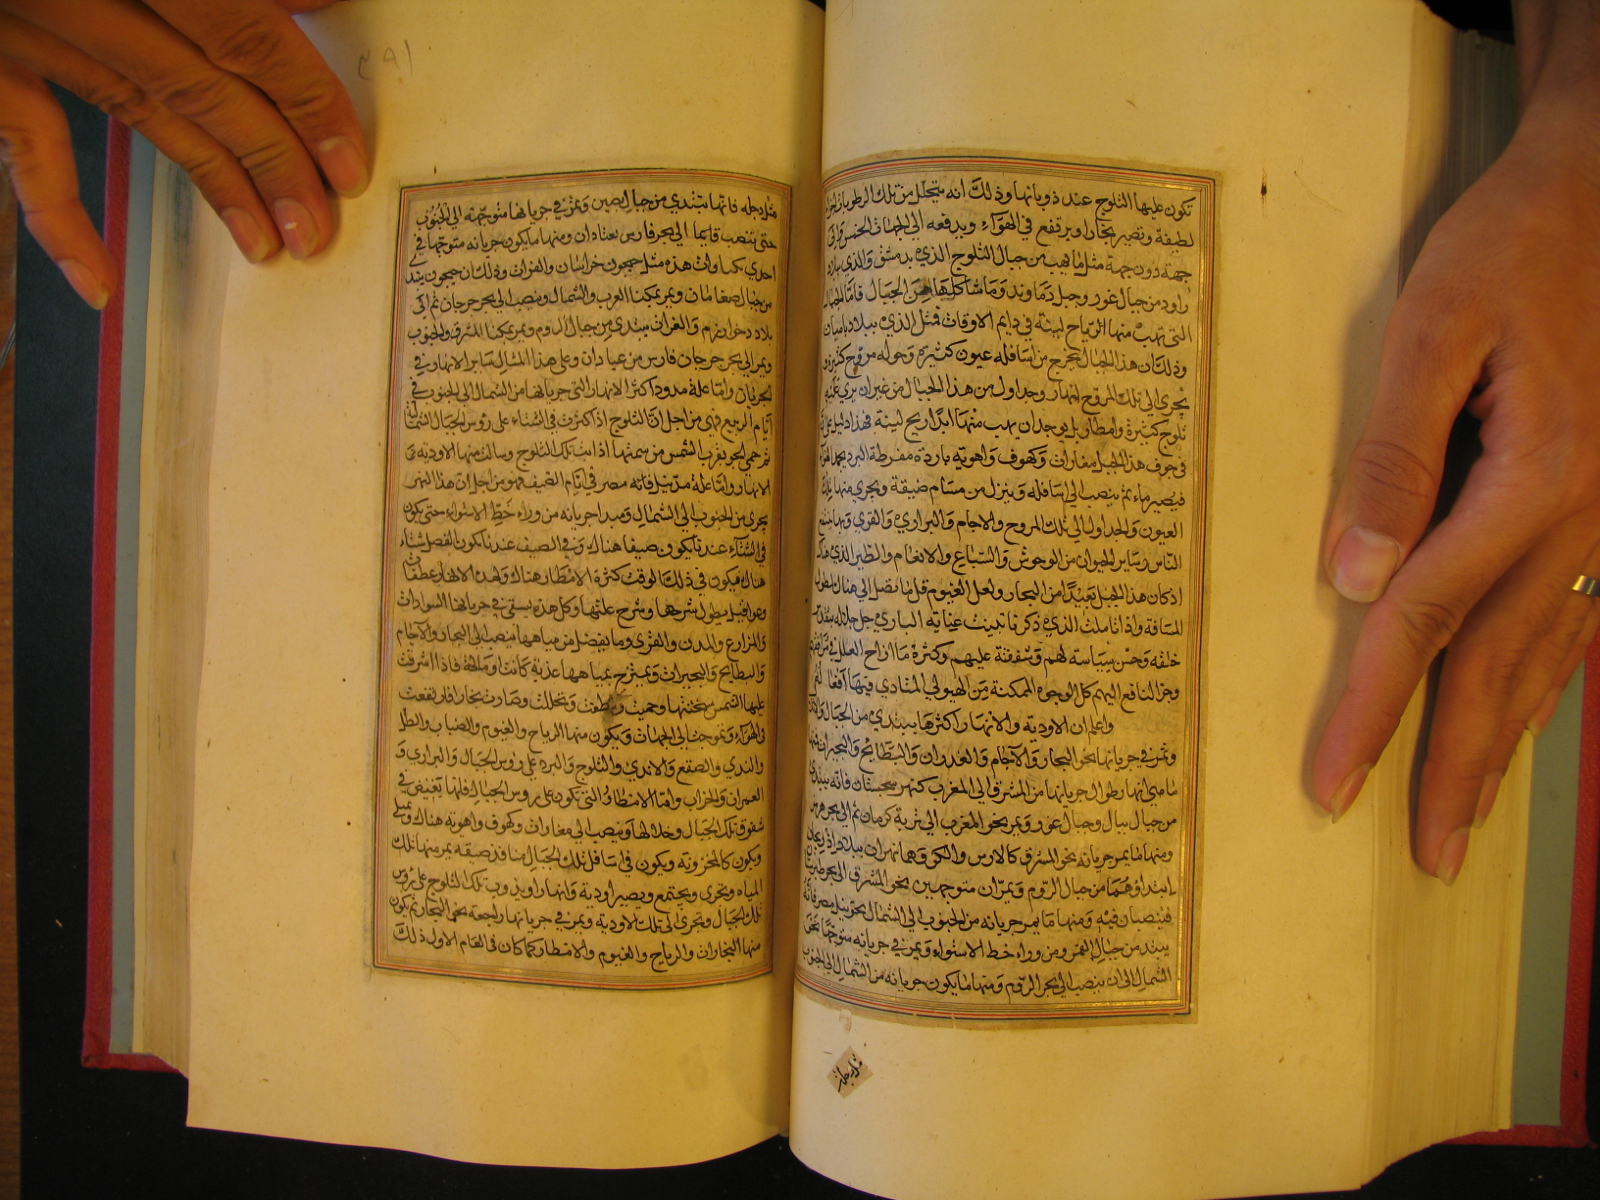 تكون عليها الثلوج عند ذوبانها وذلك انه يتحلل من تلك الرطوبات اجزاء
لطيفة وتصير بخارا ويرتفع في الهواء ويدفعه الى الجهات الخمس والى
جهة دون جهة مثل ما يهب من جبال الثلوج الذي بدمشق والذي ببلاد
راود من جبال غور وجبل دماوند وما شاكلها من الجبال فاما الجبال
التي تهب منها الرياح لينة في دايم الاوقات فمثل الذي ببلاد باميان
وذلك ان هذا الجبال يخرج من اسافله عيون كثيرة وحوله مروج كثيرة و
يجرى الى تلك المروج انهار وجداول من هذا الجبال من غير ان يرى عليه
ثلوج كثيرة وامطار بل يوجد ان يهب منها ابدا ريح لينة فهذا دليل على ان
في جوف هذا الجبل مغارات وكهوف واهوية باردة مفرطة البرد يجمد الهواء
فيصير ماء ثم ينصب الى اسافله وينزل من مسام ضيقة ويجرى منها تلك
العيون والجداول الى تلك المروج والاجام والبراري والقرى وبها ينتفع
الناس وساير الحيوان من الوحوش والسباع والانعام والطير الذي هناك
اذ كان هذا الجبل بعيدا من البحار ولعل الغيوم قل ما تصل الى هناك لطول
المسافة واذا تاملت الذي ذكرنا تبينت عناية الباري جل جلاله بمقدرته
خلقه وحسن سياسة لهم وشفقته عليهم وكثرة ما ازاح العلل في مرافقهم
وجر النافع اليهم كل الوجوه الممكنة من الهيولى المتادي فيها
واعلم ان الاودية والانهار اكثرها يبتدي من الجبال والتلال
وتمر في جريانها نحو البحار والاجام والغدران والبطايح والبحيرات فمنها
ما من انهار طوال جريانها من المشرق الى المغرب كنهر سجستان فانه يبتدي
من جبال بيال وجبال غور ويمر نحو المغرب الى شرية كرمان ثم الى بحر هرمز
ومنها ما يمر جريانه نحو المشرق كالارس والكر وهما نهران ببلاد اذربيجان
ابتداؤهما من جبال الروم ويمران متوجهين نحو المشرق الى بحر طبرستان
فينصبان فيه ومنها ما يمر جريانه من الجنوب الى الشمال نحو نيل مصر فانه
يبتد من جبال القمر ومن وراء خط الاستواء ويمر في جريانه متوجها نحو
الشمال الى ان ينصب الى بحر الروم ومنها ما يكون جريانه من الشمال الى الجنوب
مثل دجلة
٣٩١
مثل دجله فانها تبتدي من جبال نصيبين وتمر في جريانها متوجهة الى الجنوب
حتى تنصب قايما الى بحر فارس بعبادان ومنها ما يكون جريانه متوجها في
احدى نكباوات هذه مثل جيحون خراسان والفرات وذلك ان جيحون يبتد
من جبال صغانيان ويمر بمكينا الغرب والشمال وينصب الى بحر جرجان ثم الى
بلاد خوارزم والفرات يبتدي من جبال الروم ويمر بمكينا المشرق والجنوب
ويمر الى بحر جرجان فارس من عبادان وعلى هذا المثال ساير الانهار في
الجريان واما علة مدود اكثر الانهار التي جريانها من الشمال الى الجنوب في
ايام الربيع فهي من اجل ان الثلوج اذا كثرت في الشتاء على رؤس الجبال الشمالية
ثم حمي الجو بقرب الشمس من سمتها اذابت تلك الثلوج وسالت منها الاودية و
الانهار واما علة مد نيل فانه مصر في ايام الصيف فهو من اجل ان هذا النهر
يجرى من الجنوب الى الشمال ومبدا جريانه من وراء خط الاستواء حتى يكون
في الشتاء عندنا يكون صيفا هناك وفي الصيف عندنا يكون الفصل شتاء
هناك فيكون في ذلك الوقت كثرة الامطار هناك ولهذه الانهار عطفات
وعراقيل يطول شرحها وشرح علتها وكل هذه يستقي في جريانها السوادات
والمزارع والمدن والقرى وما يفضل من مياهها ينصب الى البحار والاجام
والبطايح والبحيرات ويمتزج بمياهها عذبة كانت او مالحة فاذا اشرقت
عليها الشمس سخنتها وحميت ولطفت وتحللت وصارت بخارا فارتفعت
في الهواء وتموجت الى الجهات ويكون منها الرياح والغيوم والضباب والطل
والندى والصقع والانداي والثلوج والبرد على رؤس الجبال والبراري و
العمران والخراب واما الامطار التي تكون على رؤس الجبال فانها تغيض في
شقوق تلك الجبال وخلالها وينصب الى مغارات وكهوف واهوية هناك وتمتلى
ويكون كالمخزونة ويكون في اسافل تلك الجبال منافذ ضيقة يمر منها تلك
المياه وتجرى ويجتمع ويصير اودية وانهارا ويذوب تلك الثلوج على رؤس
تلك الجبال وتجرى الى تلك الاودية ويمر في جريانها راجعة نحو البحار ثم يكون
منها البخارات والرياح والغيوم والامطار كما كان في العام الاول ذلك